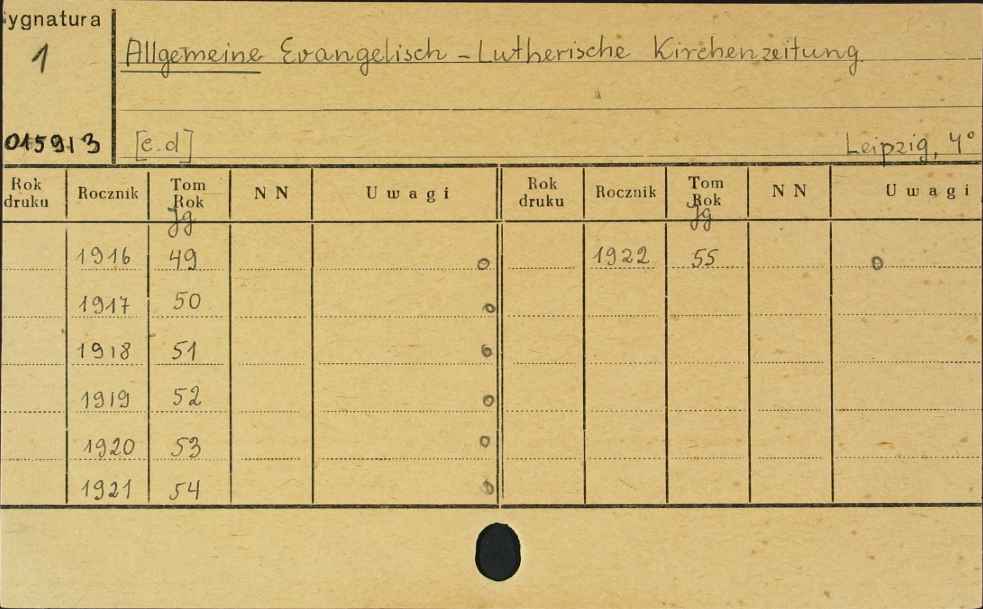 ygnatura
1
Allgemeine Evangelisch-Lutherische Kirchenzeitung
015913 [e.d] Leipzig, 4°
Rok druku Rocznik Tom Rok Jg NN Uwagi Rok druku Rocznik Tom Rok Jg NN Uwagi
1916 49 o 1922 55 o
1917 50 o
1918 51 o
1919 52 o
1920 53 o
1921 54 o